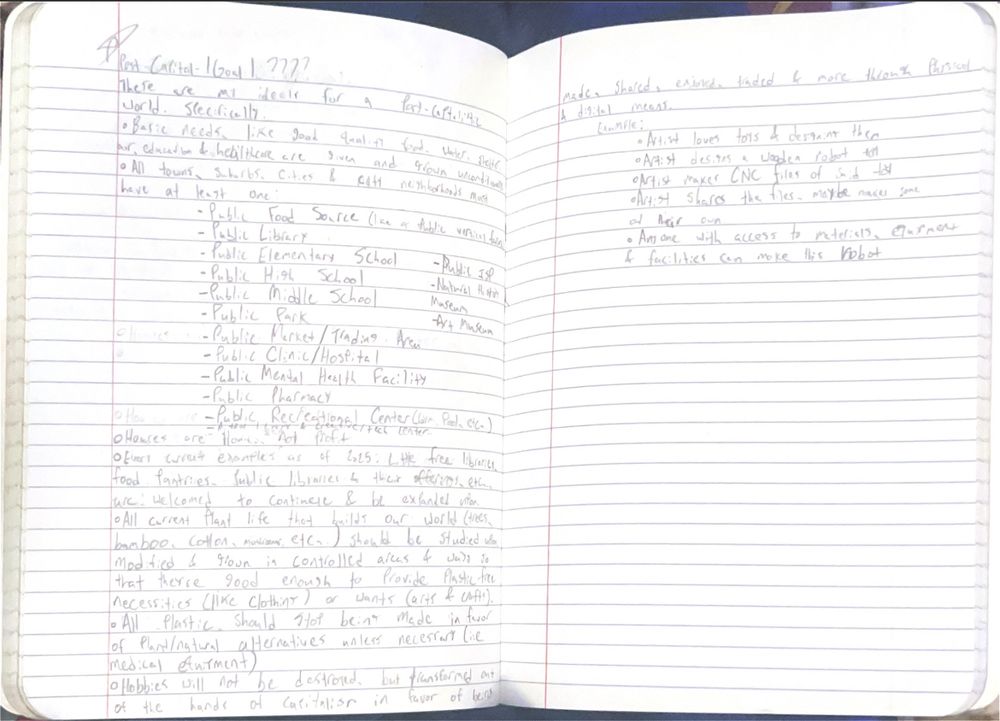 Post-Capital- |Goal| ????
These are my ideals for a Post-Capitalistic
world. Specifically.
• Basic needs, like good quality food, water, shelter
air, education & healthcare are given and grown unconditionally
• All towns, suburbs, cities & neighborhoods must
have at least one:
- Public Food Source (like a Public vertical farm)
- Public Library
- Public Elementary School
- Public High School
- Public Middle School
- Public Park
- Public Market/Trading Area
- Public Clinic/Hospital
- Public Mental Health Facility
- Public Pharmacy
- Public Recreational Center (Gym, Pool, etc.)
- Public ISP
- Natural History
Museum
- Art Museum
center
o Houses are Homes. Not Profit
o Every current examples as of 2025: Little free libraries,
food pantries, Public libraries & their offerings, etc.
are: welcomed to continue & be expanded upon
o All current Plant life that builds our world (trees,
bamboo, cotton, mushrooms, etc.) should be studied
modified & grown in controlled areas & ways so
that there's good enough to Provide Plastic-free
necessities (like clothing) or wants (arts & crafts).
• All Plastic should stop being made in favor
of Plant/natural alternatives unless necessary (i.e
medical equipment)
o Hobbies will not be destroyed, but transformed out
of the hands of capitalism in favor of being
made, shared, enjoyed, traded & more through Physical
& digital means.
Example:
• Artist loves toys & designing them
• Artist designs a wooden robot toy
• Artist makes CNC files of said toy
• Artist shares the files, maybe makes some
of their own
• Anyone with access to materials, equipment
& facilities can make this Robot